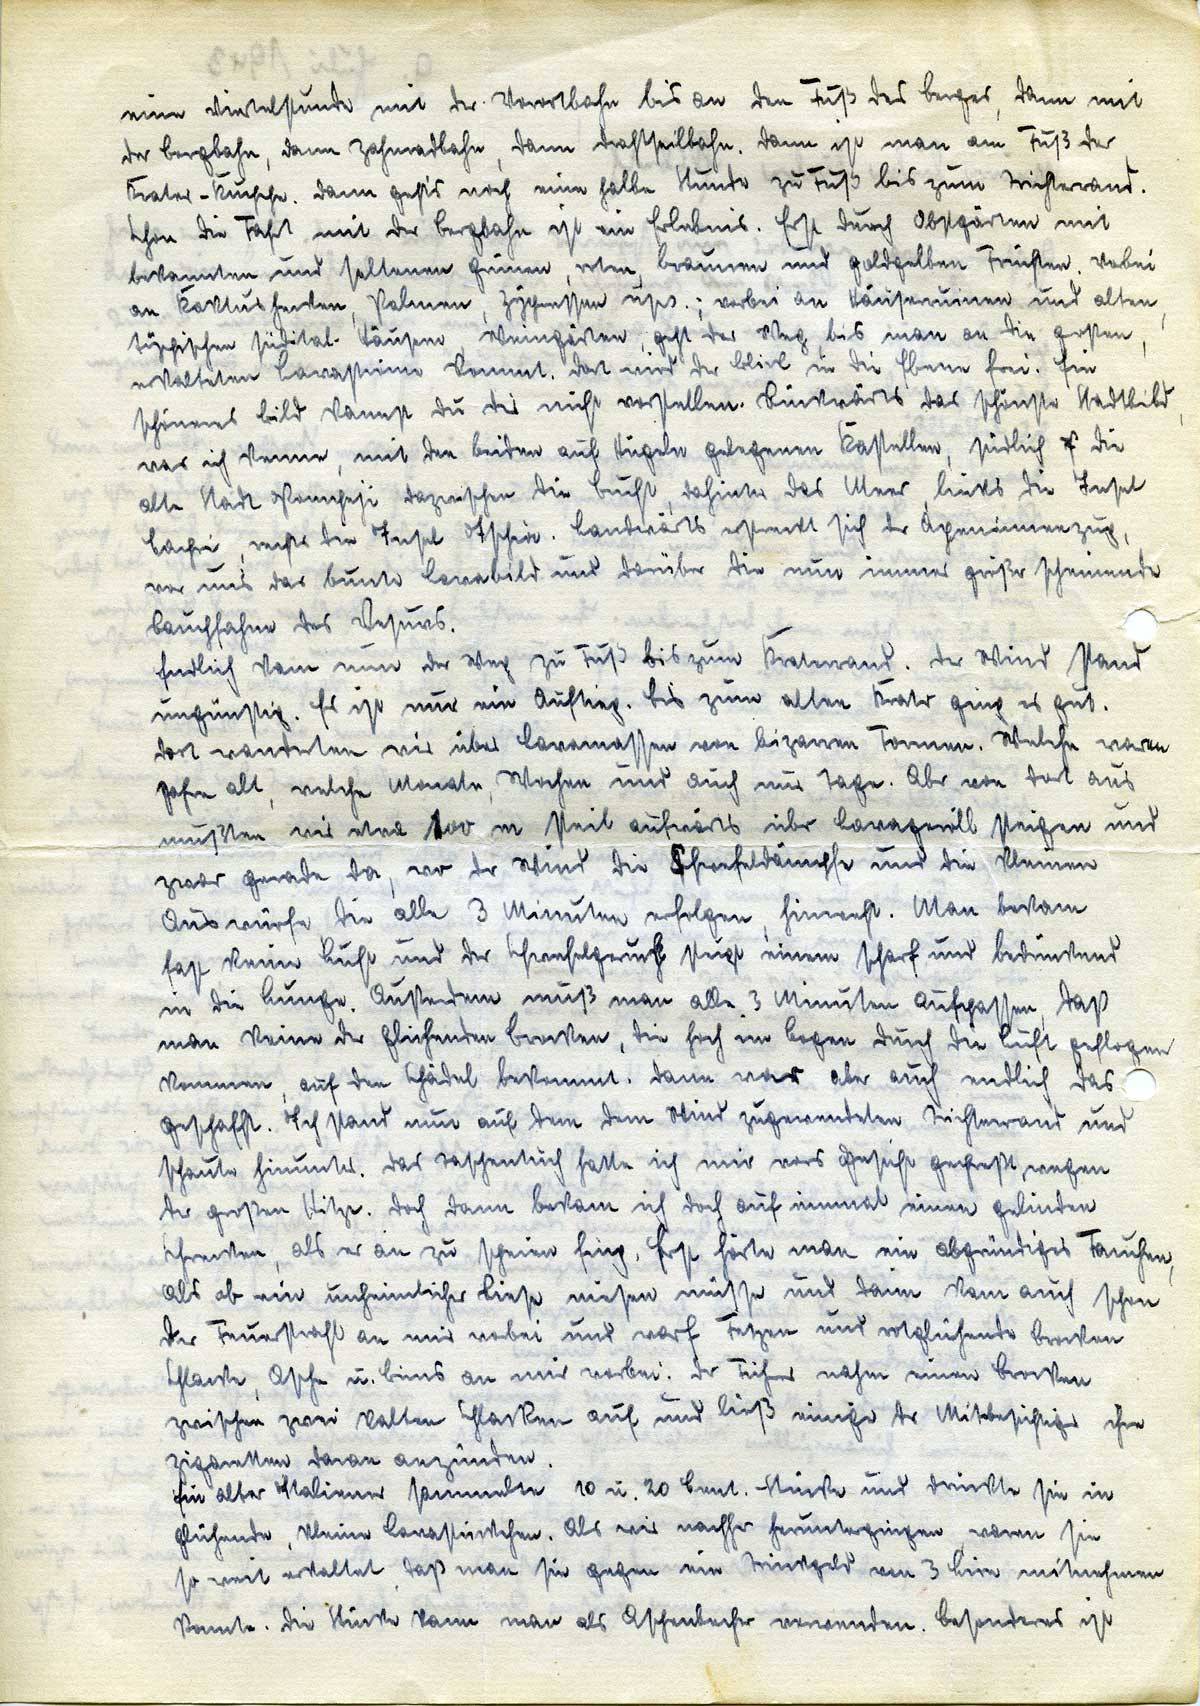 eine Viertelstunde mit der Vorortbahn bis an den Fuß des Berges, dann mit
der Bergbahn, dann Zahnradbahn, dann Drahtseilbahn. Dann ist man am Fuß der
Krater-Kuppe. Dann geht's noch eine halbe Stunde zu Fuß bis zum Trichterrand.
Schon die Fahrt mit der Bergbahn ist ein Erlebnis. Erst durch Obstgärten mit
bekannten und seltenen grünen, roten, braunen und goldgelben Früchten. Vorbei
an Kaktushecken, Palmen, Zypressen usw.; vorbei an Häuserruinen und alten,
typischen südital. Häusern, Weingärten, geht der Weg bis man an die ersten,
erkalteten Lavaströme kommt. Dort wird der Blick in die Ebene frei. Ein
schöneres Bild kannst du dir nicht vorstellen. Linkwärts das schönste Stadtbild,
was ich kenne, mit den beiden auf Hügeln gelegenen Kastellen, südlich die
alte Stadt Pompeji dazwischen die Bucht, dahinter das Meer links die Insel
Capri, rechts die Insel Ischia. Landwärts erstreckt sich der Apenninenzug,
vor uns das bunte Lavabild und darüber die nun immer größer scheinende
Rauchfahne des Vesuvs.
Endlich kam nun der Weg zu Fuß bis zum Kraterrand. Der Wind stand
ungünstig. Es ist nur ein Aufstieg. Bis zum alten Krater ging es gut.
Dort wanderten wir über Lavamassen von bizarren Formen. Welche waren
Jahre alt, welche Monate, Wochen und auch nur Tage. Aber von dort aus
mußten wir etwa 100 m steil aufwärts über Lavageröll steigen und
zwar gerade da, wo der Wind die Schwefeldämpfe und die kleinen
Auswürfe die alle 3 Minuten erfolgen, hinweht. Man bekam
fast keine Luft und der Schwefelgeruch steigt einem scharf und bedrückend
in die Lunge. Außerdem muß man alle 3 Minuten aufpassen, daß
man keine der glühenden Brocken, die hoch im Bogen durch die Luft geflogen
kommen, auf den Schädel bekommt. Dann war aber auch endlich das
geschafft. Ich stand nun auf dem dem Wind zugewendeten Trichterrand und
schaute hinunter. Das Taschentuch hatte ich mir vors Gesicht gepreßt, wegen
der großen Hitze. Doch dann bekam ich doch auf einmal einen gelinden
Schrecken, als er an zu speien fing. Erst hörte man ein abgründiges Fauchen,
als ob ein unheimlicher Riese niesen müsse und dann kam auch schon
der Feuerstrahl an mir vorbei und warf Fetzen und rotglühende Brocken
Schlacke, Asche u. Bims an mir vorbei. Der Führer nahm einen Brocken
zwischen zwei kalten Schlacken auf und ließ einige der Mitbesichtiger ihre
Zigaretten daran anzünden.
Ein alter Italiener sammelte 10 u. 20 Cent. Stücke und drückte sie in
glühende, kleine Lavastückchen. Als wir nachher heruntergingen, waren sie
so weit erkaltet, daß man sie gegen ein Trinkgeld von 3 Lire mitnehmen
konnte. Die Stücke kann man als Aschenbecher verwenden. Besonderes ist